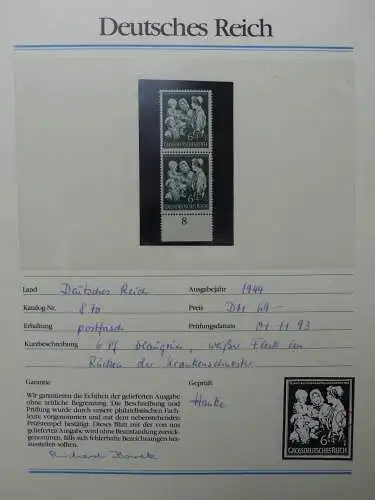 Deutsches Reich
6+4
GROSSDEUTSCHES REICH
6+4
GROSSDEUTSCHES REICH
8
Land Deutsches Reich Ausgabejahr 1944
Katalog-Nr. 870 Preis DM 69,-
Erhaltung postfrisch Prüfungsdatum 01.11.93
Kurzbeschreibung 6 Pf blaugrün, weißer Fleck im
Rücken der Krankenschwester
Garantie Geprüft
Wir garantieren die Echtheit der gelieferten Ausgabe
ohne zeitliche Begrenzung. Die Beschreibung und
Prüfung wurde durch unsere philatelistischen Fach-
leute vorgenommen und mit dem nebenstehenden
Prüfstempel bestätigt. Dieses Blatt mit der von uns
gelieferten Ausgabe wird ohne Beanstandung zurück-
genommen, falls sich fehlerhafte Bezeichnungen her-
ausstellen.
Hanke
Richard Borek
6+4
GROSSDEUTSCHES REICH